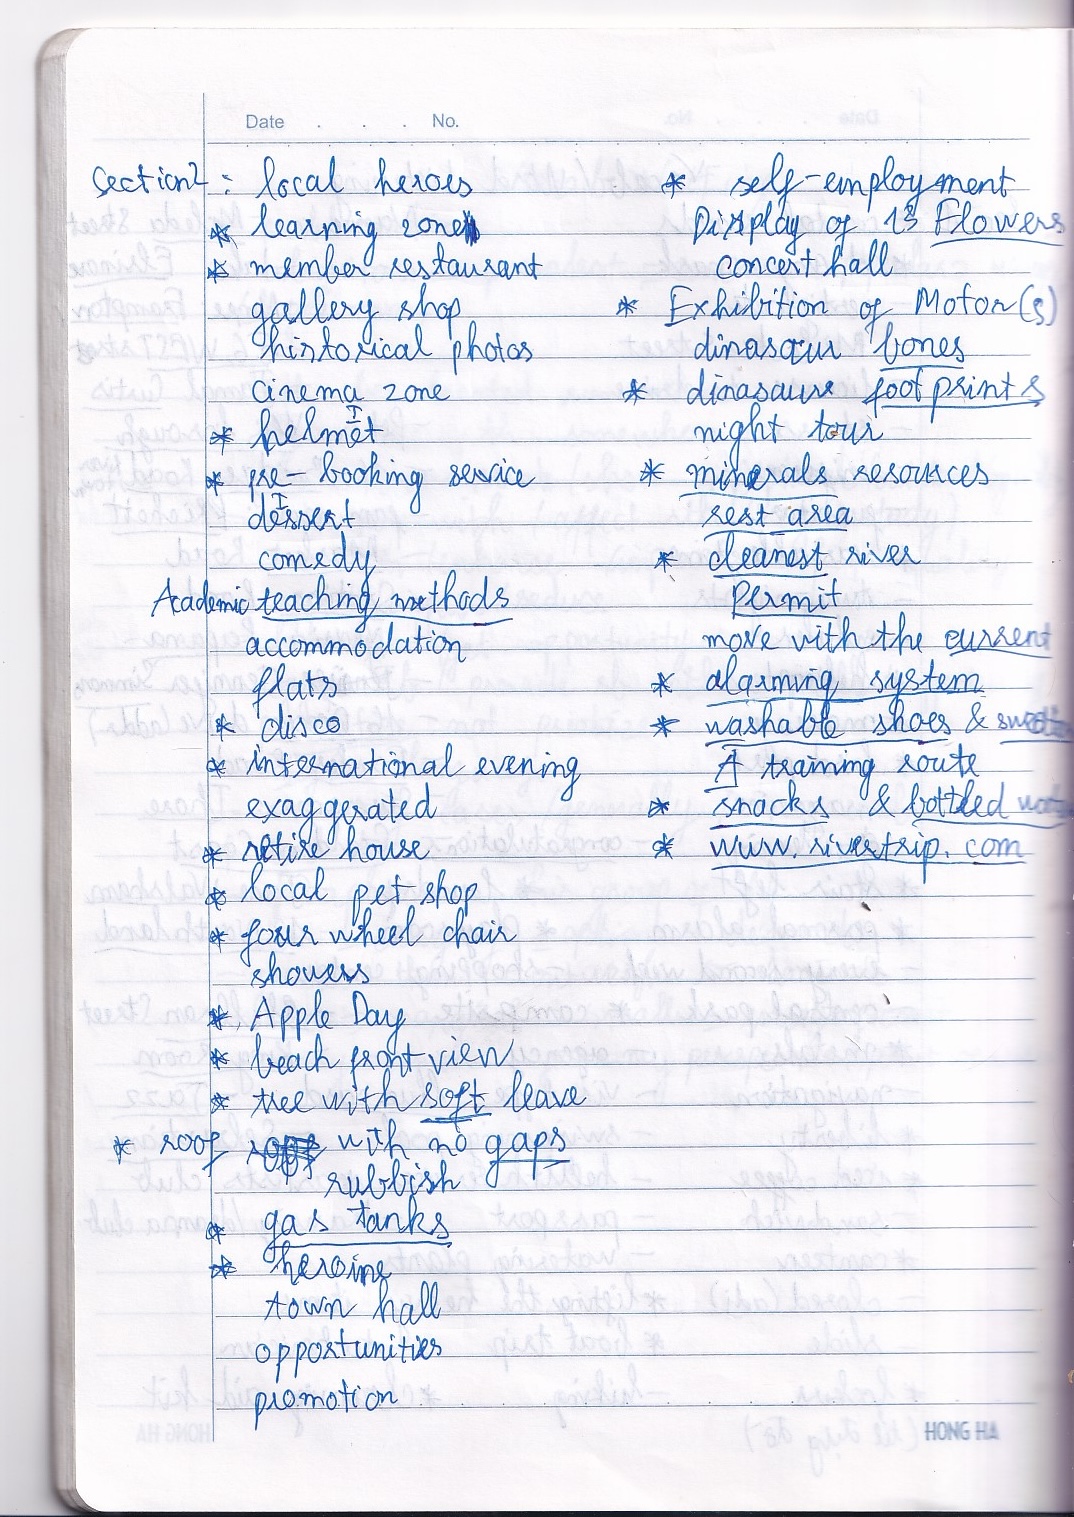 Date . . . No.
Section 2 : local heroes
* learning zone
* member restaurant
gallery shop
historical photos
cinema zone
* helmet
* pre-booking service
dessert
comedy
Academic teaching methods
accommodation
flats
* disco
* international evening
exaggerated
* retire house
* local pet shop
* four wheel chair
showers
* Apple Day
* beach front view
* tree with soft leave
* roof with no gaps
rubbish
* gas tanks
* heroine
town hall
opportunities
promotion
* self-employment
Display of 13 Flowers
concert hall
* Exhibition of Motor(s)
dinasour bones
* dinasaur footprints
night tour
* minerals resources
rest area
* cleanest river
Permit
move with the current
* alarming system
* washable shoes &
A training route
* snacks & bottled
* www.rivertrip.com
HONG HA